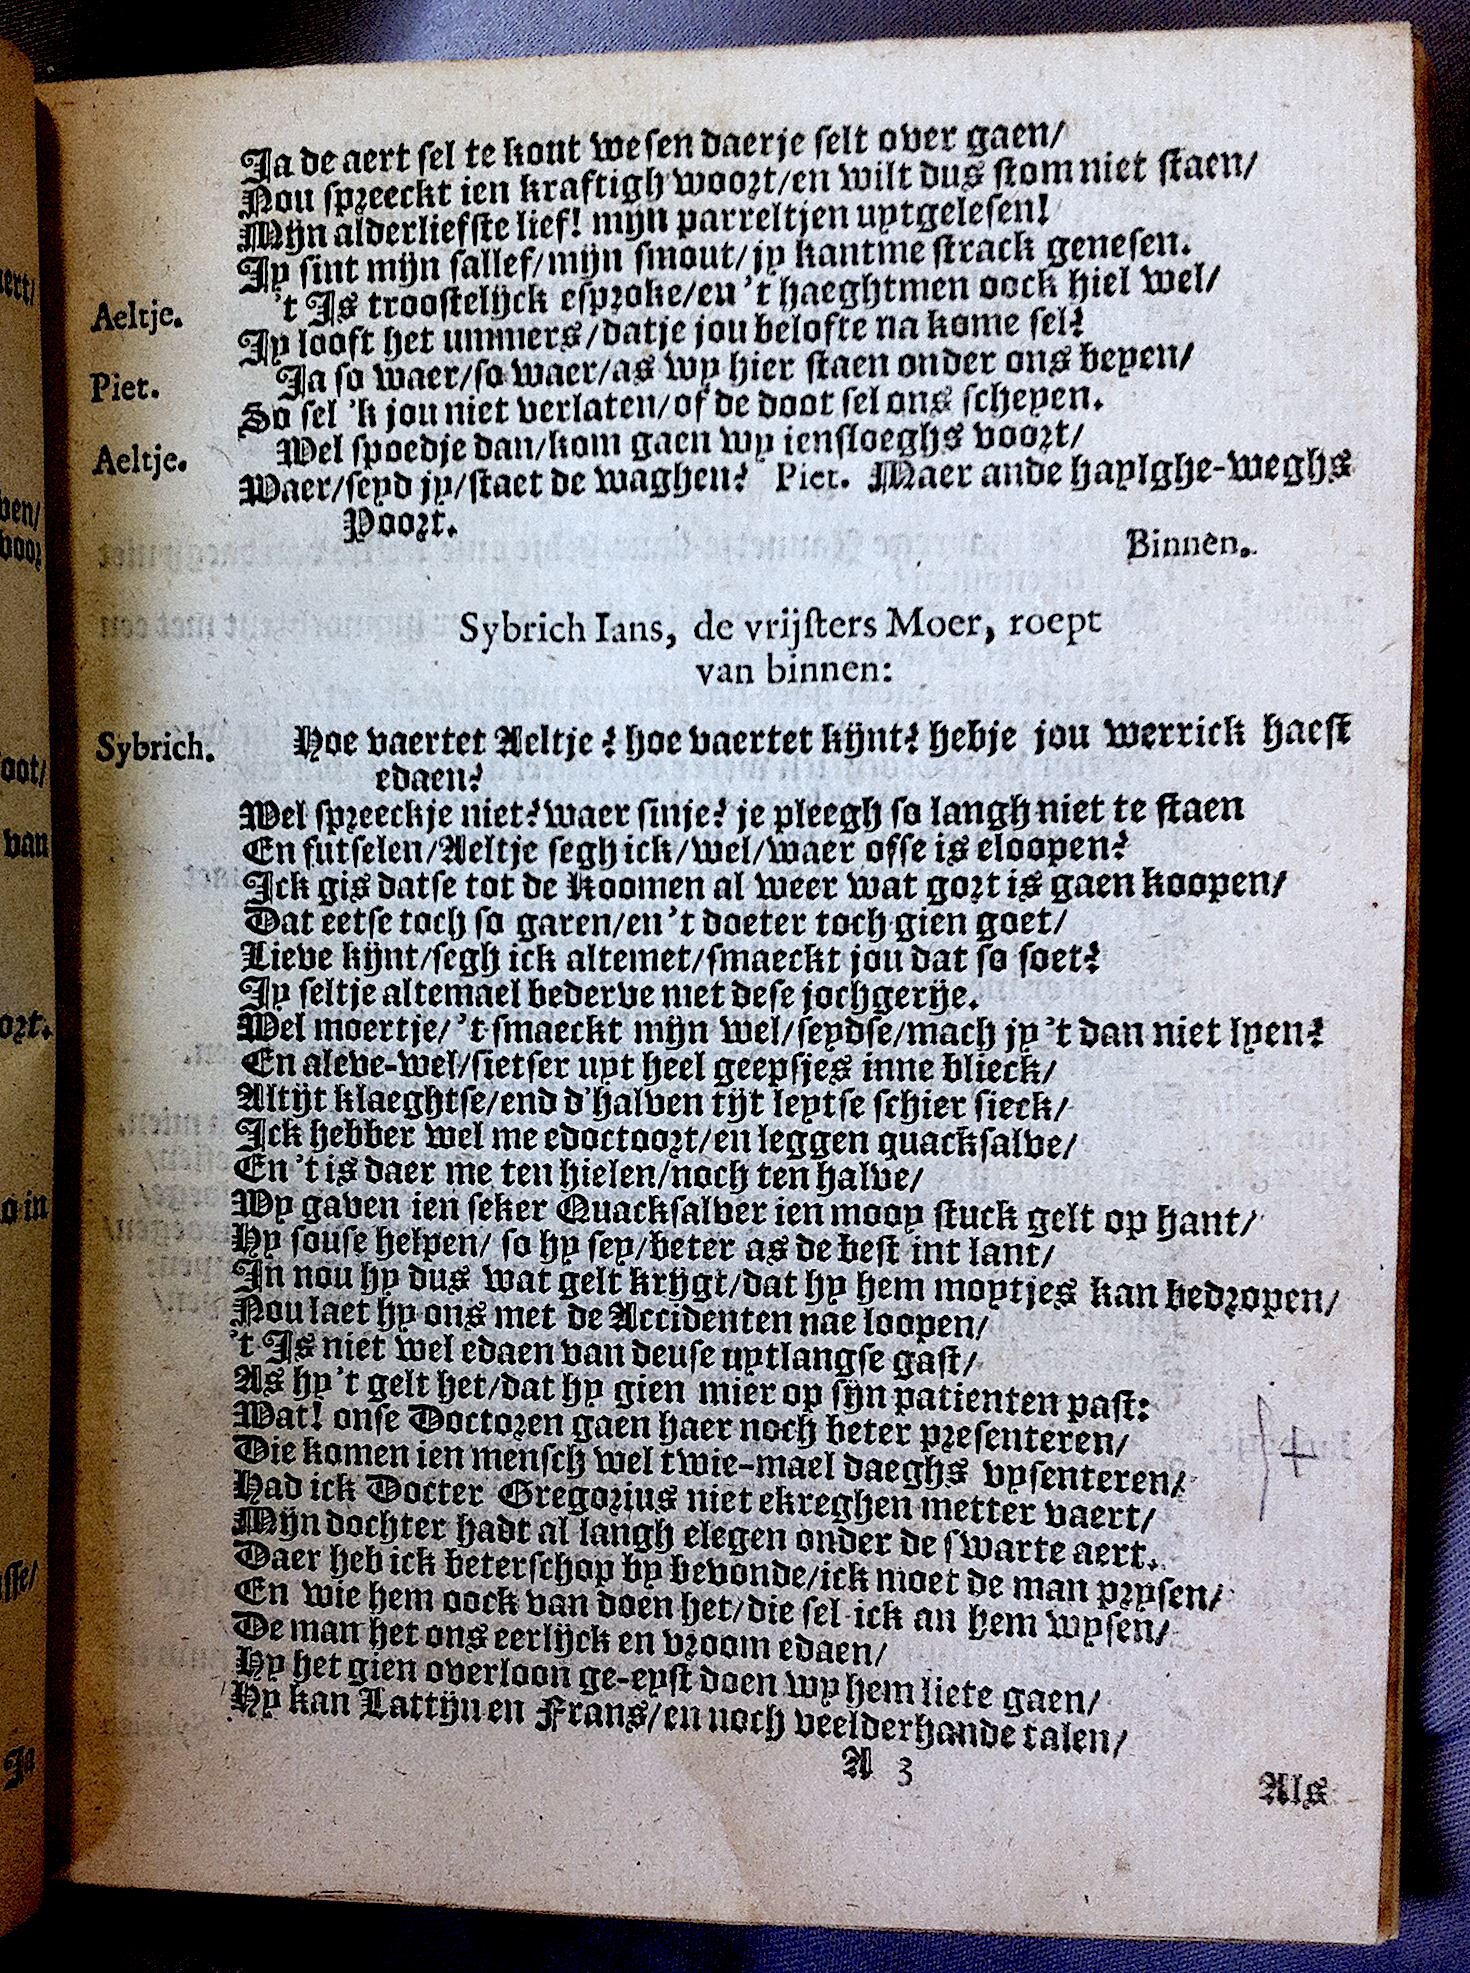 Ja de aert sel te kout wesen daerje selt over gaen/
Nou spreeckt ien kraftigh woort/en wilt dus stom niet staen/
Mijn alderliefste lief! mijn parreltjen uytgelesen!
Jy sint mijn sallef/mijn smout/jy kantme strack genesen.
Aeltje. 't Is troostelijck esproke/en 't haeghtmen oock hiel wel/
Jy looft het ummers/datje jou belofte na kome sel?
Piet. Ja so waer/so waer/as wy hier staen onder ons beyen/
So sel 'k jou niet verlaten/of de doot sel ons scheyen.
Aeltje. Wel spoedje dan/kom gaen wy iensloeghs voort/
Waer/seyd jy/staet de waghen? Piet. Maer ande haylghe-weghs
Poort.
Binnen.
Sybrich Ians, de vrijsters Moer, roept
van binnen:
Sybrich. Hoe vaertet Aeltje? hoe vaertet kijnt? hebje jou werrick haest
edaen?
Wel spreeckje niet? waer sinje? je pleegh so langh niet te staen
En futselen/Aeltje segh ick/wel/waer osse is eloopen?
Ick gis datse tot de Koomen al weer wat gort is gaen koopen/
Dat eetse toch so garen/en 't doeter toch gien goet/
Lieve kijnt/segh ick altemet/smaeckt jou dat so soet?
Jy seltje altemael bederve met dese jochgerije.
Wel moertje/'t smaeckt mijn wel/seydse/mach jy 't dan niet lyen?
En aleve-wel/sietser uyt heel geepsjes inne blieck/
Altijt klaeghtse/end d'halven tijt leytse schier sieck/
Ick hebber wel me edoctoort/en leggen quacksalve/
En 't is daer me ten hielen/noch ten halve/
Wy gaven ien seker Quacksalver ien mooy stuck gelt op hant/
Hy souse helpen/ so hy sey/beter as de best int lant/
In nou hy dus wat gelt krijgt/dat hy hem moytjes kan bedropen/
Nou laet hy ons met de Accidenten nae loopen/
't Is niet wel edaen van deuse uytlangse gast/
As hy 't gelt het/dat hy gien mier op sijn patienten past:
Wat! onse Doctoren gaen haer noch beter presenteren/
Die komen ien mensch wel twie-mael daeghs vysenteren/
Had ick Docter Gregorius niet ekreghen metter vaert/
Mijn dochter hadt al langh elegen onder de swarte aert.
Daer heb ick beterschop by bevonde/ick moet de man prysen/
En wie hem oock van doen het/die sel ick an hem wysen/
De man het ons eerlijck en vroom edaen/
Hy het gien overloon ge-eyst doen wy hem liete gaen/
Hy kan Lattijn en Frans/en noch veelderhande talen/
A 3
Als